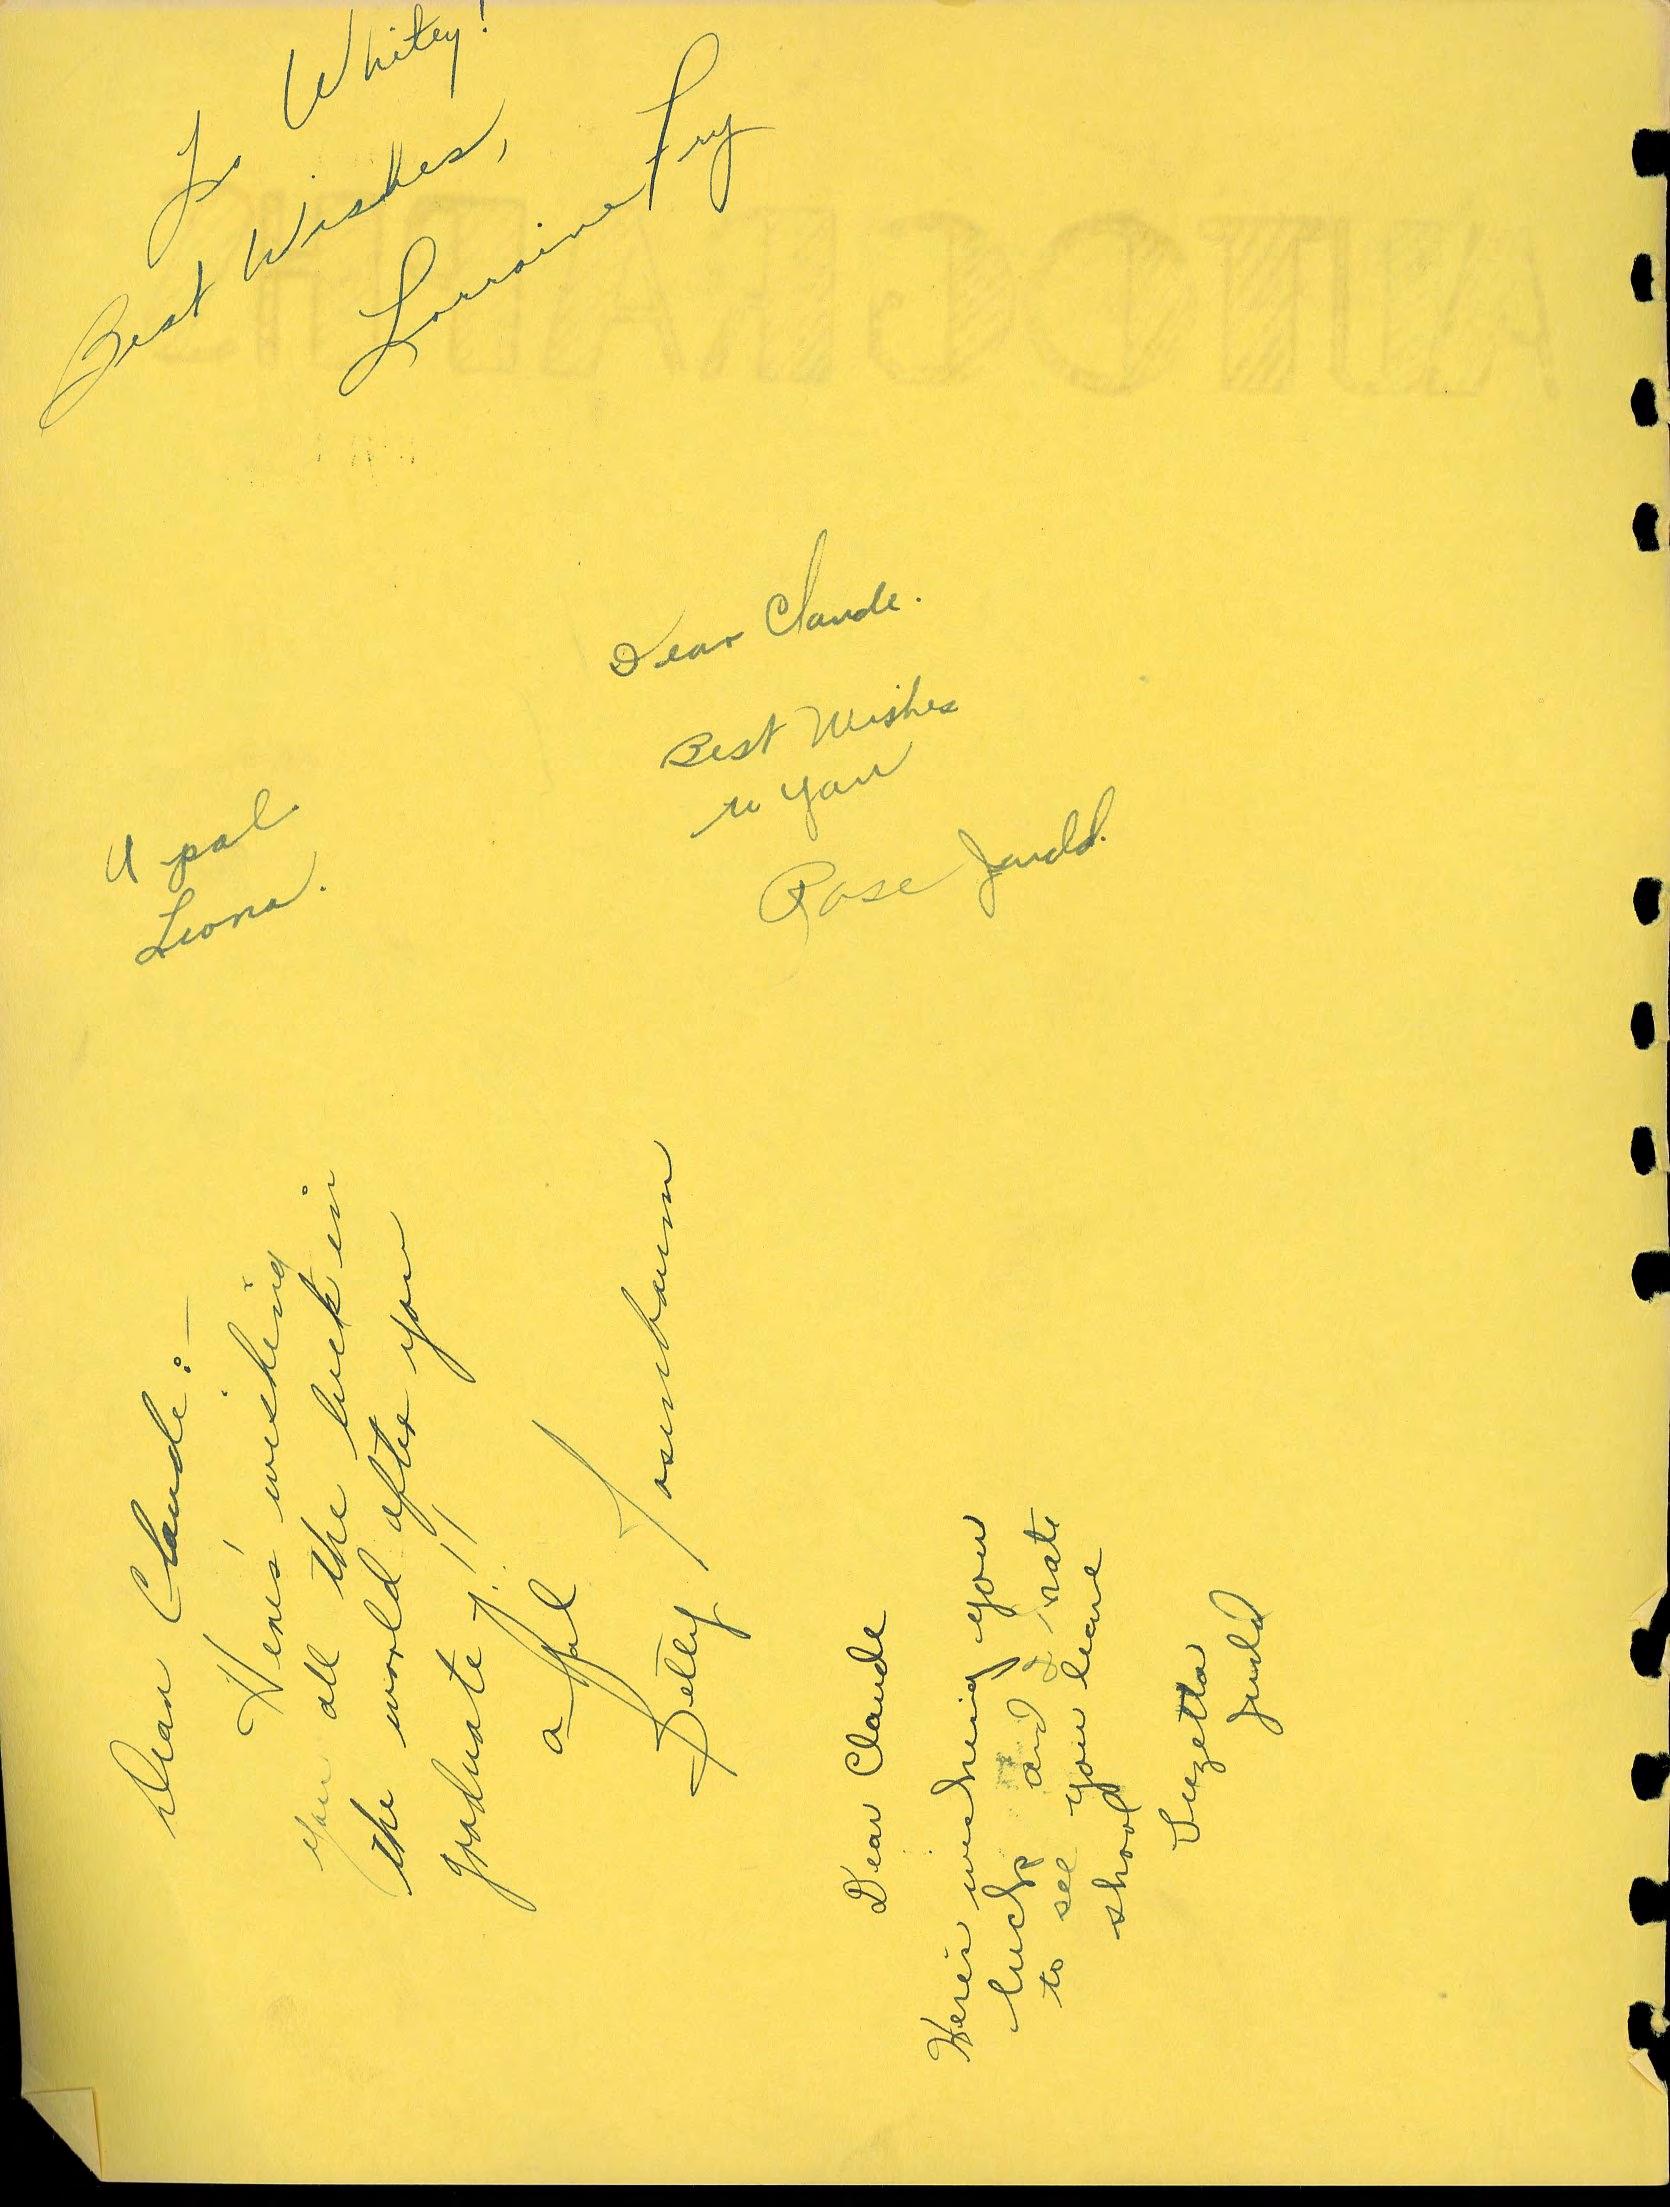 To Whitey!
Best Wishes,
Lorraine Fry
Dear Claude.
Best Wishes
to you
Rose Judd.
A pal
Leona.
Dear Claude:—
Here's wishing
you all the luck in
the world after you
graduate!!!
a pal
Betty
Dear Claude
Here's wishing you
luck and I hate
to see you leave
shool
Suzetta
Judd
AUTOGRAPHS